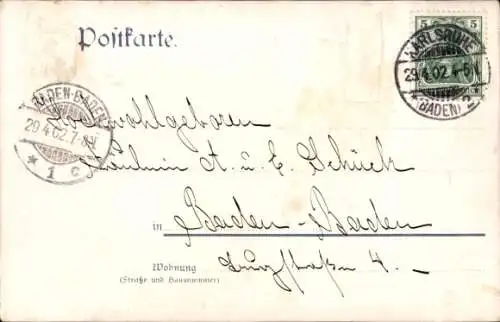 Postkarte.
5 5
KARLSRUHE
29.4.02.4-5N.
(BADEN) 2
BADEN-BADEN
29.4.02.7-8N.
* 1 c *
Hochwohlgeboren
Fräulein A. u. E. Schück
in Baden-Baden
Wohnung
(Straße und Hausnummer)
4. –